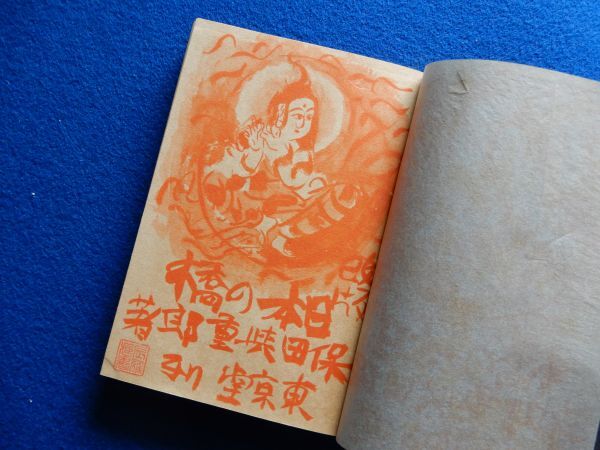 日本の橋
保田與重郎著
東京堂刊